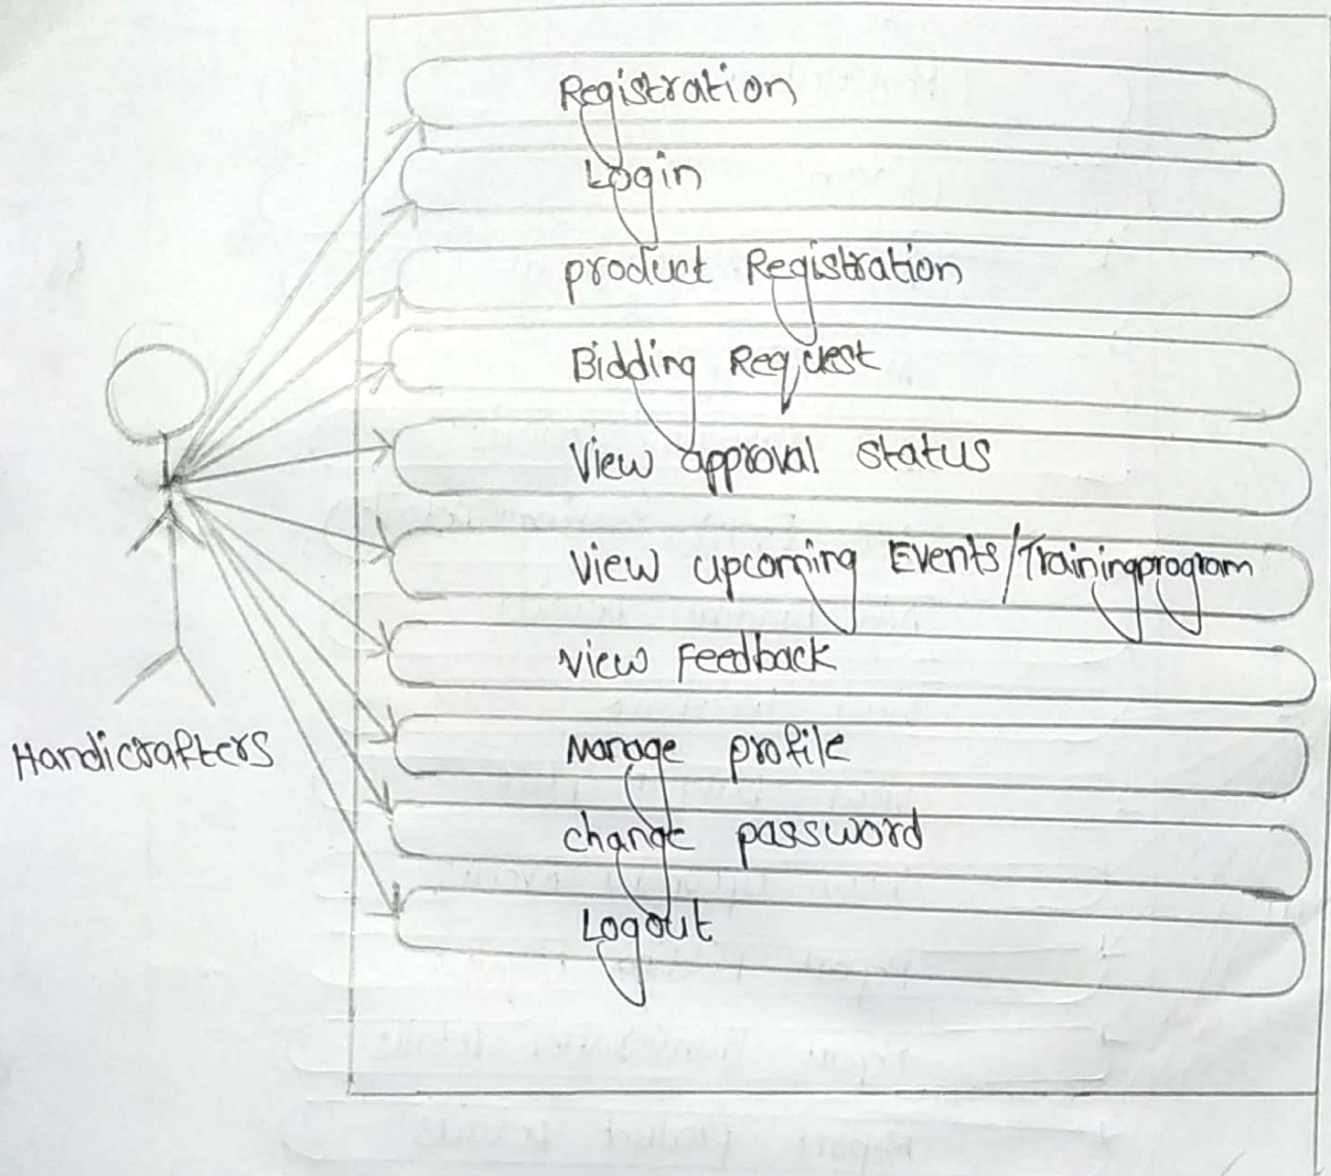 Registration
Login
product Registration
Bidding Request
View approval status
View upcoming Events/Trainingprogram
View Feedback
Handicrafters
Manage profile
change password
Logout